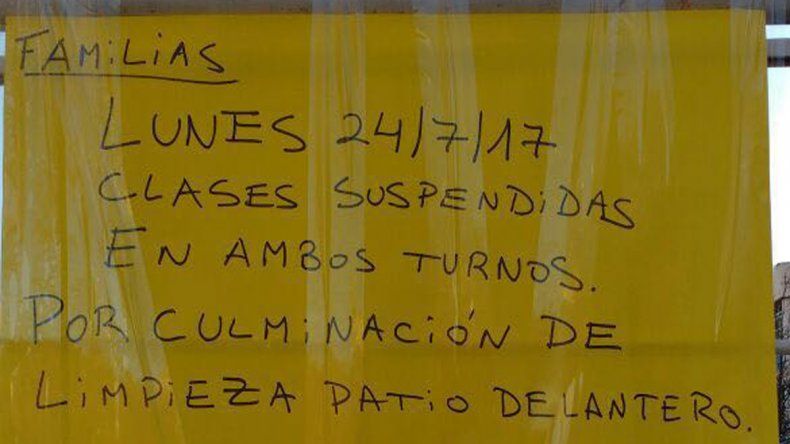 FAMILIAS
LUNES 24/7/17
CLASES SUSPENDIDAS
EN AMBOS TURNOS.
POR CULMINACIÓN DE
LIMPIEZA PATIO DELANTERO.